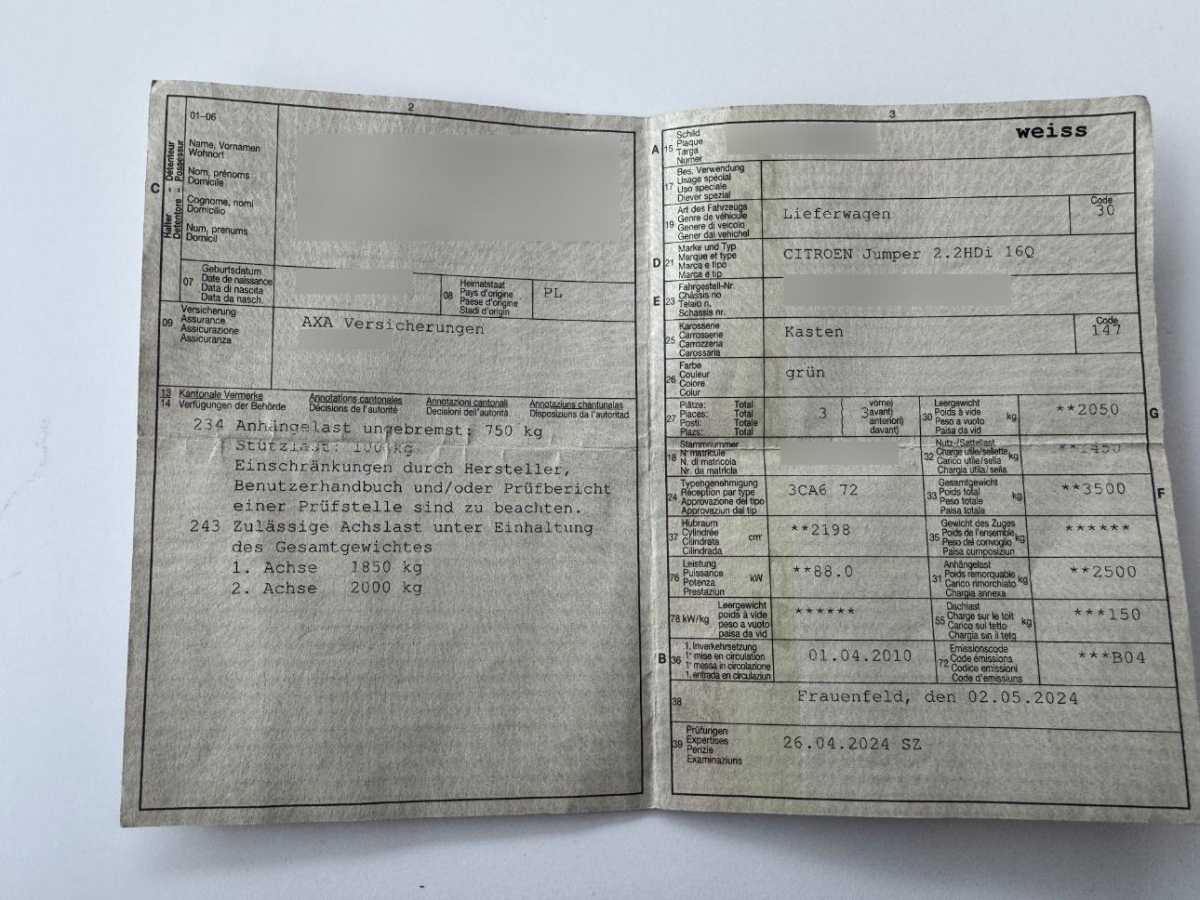 2
01–06
Halter - Détenteur
Detentore - Possessur
C
Name, Vornamen
Wohnort
Nom, prénoms
Domicile
Cognome, nomi
Domicilio
Num, prenums
Domicil
07
Geburtsdatum
Date de naissance
Data di nascita
Data da nasch.
08
Heimatstaat
Pays d'origine
Paese d'origine
Stadi d'origin
PL
09
Versicherung
Assurance
Assicurazione
Assicuranza
AXA Versicherungen
13 Kantonale Vermerke Annotations cantonales Annotazioni cantonali Annotaziuns chantunalas
14 Verfügungen der Behörde Décisions de l'autorité Decisioni dell'autorità Disposiziuns da l'autoritad
234 Anhängelast ungebremst: 750 kg
Stützlast: 100 kg
Einschränkungen durch Hersteller,
Benutzerhandbuch und/oder Prüfbericht
einer Prüfstelle sind zu beachten.
243 Zulässige Achslast unter Einhaltung
des Gesamtgewichtes
1. Achse 1850 kg
2. Achse 2000 kg
3
A 15
Schild
Plaque
Targa
Numer
weiss
17
Bes. Verwendung
Usage spécial
Uso speciale
Diever spezial
19
Art des Fahrzeugs
Genre de véhicule
Genere di veicolo
Gener dal vehichel
Lieferwagen
Code
30
D 21
Marke und Typ
Marque et type
Marca e tipo
Marca e tip
CITROEN Jumper 2.2HDi 16Q
E 23
Fahrgestell-Nr.
Châssis no
Telaio n.
Schassis nr.
25
Karosserie
Carrosserie
Carrozzeria
Carossaria
Kasten
Code
147
26
Farbe
Couleur
Colore
Colur
grün
27
Plätze: Total
Places: Total
Posti: Totale
Plazs: Total
3
vorne)
3 avant)
anteriori)
davant)
30
Leergewicht
Poids à vide
Peso a vuoto
Paisa da vid
kg
**2050
G
18
Stammnummer
N° matricule
N. di matricola
Nr. da matricla
32
Nutz-/Sattellast
Charge utile/sellette
Carico utile/sella
Chargia utila/sella
kg
**1450
24
Typengenehmigung
Réception par type
Approvazione del tipo
Approvaziun dal tip
3CA6 72
33
Gesamtgewicht
Poids total
Peso totale
Paisa totala
kg
**3500
F
37
Hubraum
Cylindrée
Cilindrata
Cilindrada
cm³
**2198
35
Gewicht des Zuges
Poids de l'ensemble
Peso del convoglio
Paisa cumposiziun
kg
******
76
Leistung
Puissance
Potenza
Prestaziun
kW
**88.0
31
Anhängelast
Poids remorquable
Carico rimorchiato
Chargia annexa
kg
**2500
78 kW/kg
Leergewicht
poids à vide
peso a vuoto
paisa da vid
******
55
Dachlast
Charge sur le toit
Carico sul tetto
Chargia sin il tetg
kg
***150
B 36
1. Inverkehrsetzung
1re mise en circulation
1a messa in circolazione
1. entrada en circulaziun
01.04.2010
72
Emissionscode
Code émissions
Codice emissioni
Code d'emissiuns
***B04
38
Frauenfeld, den 02.05.2024
39
Prüfungen
Expertises
Perizie
Examinaziuns
26.04.2024 SZ